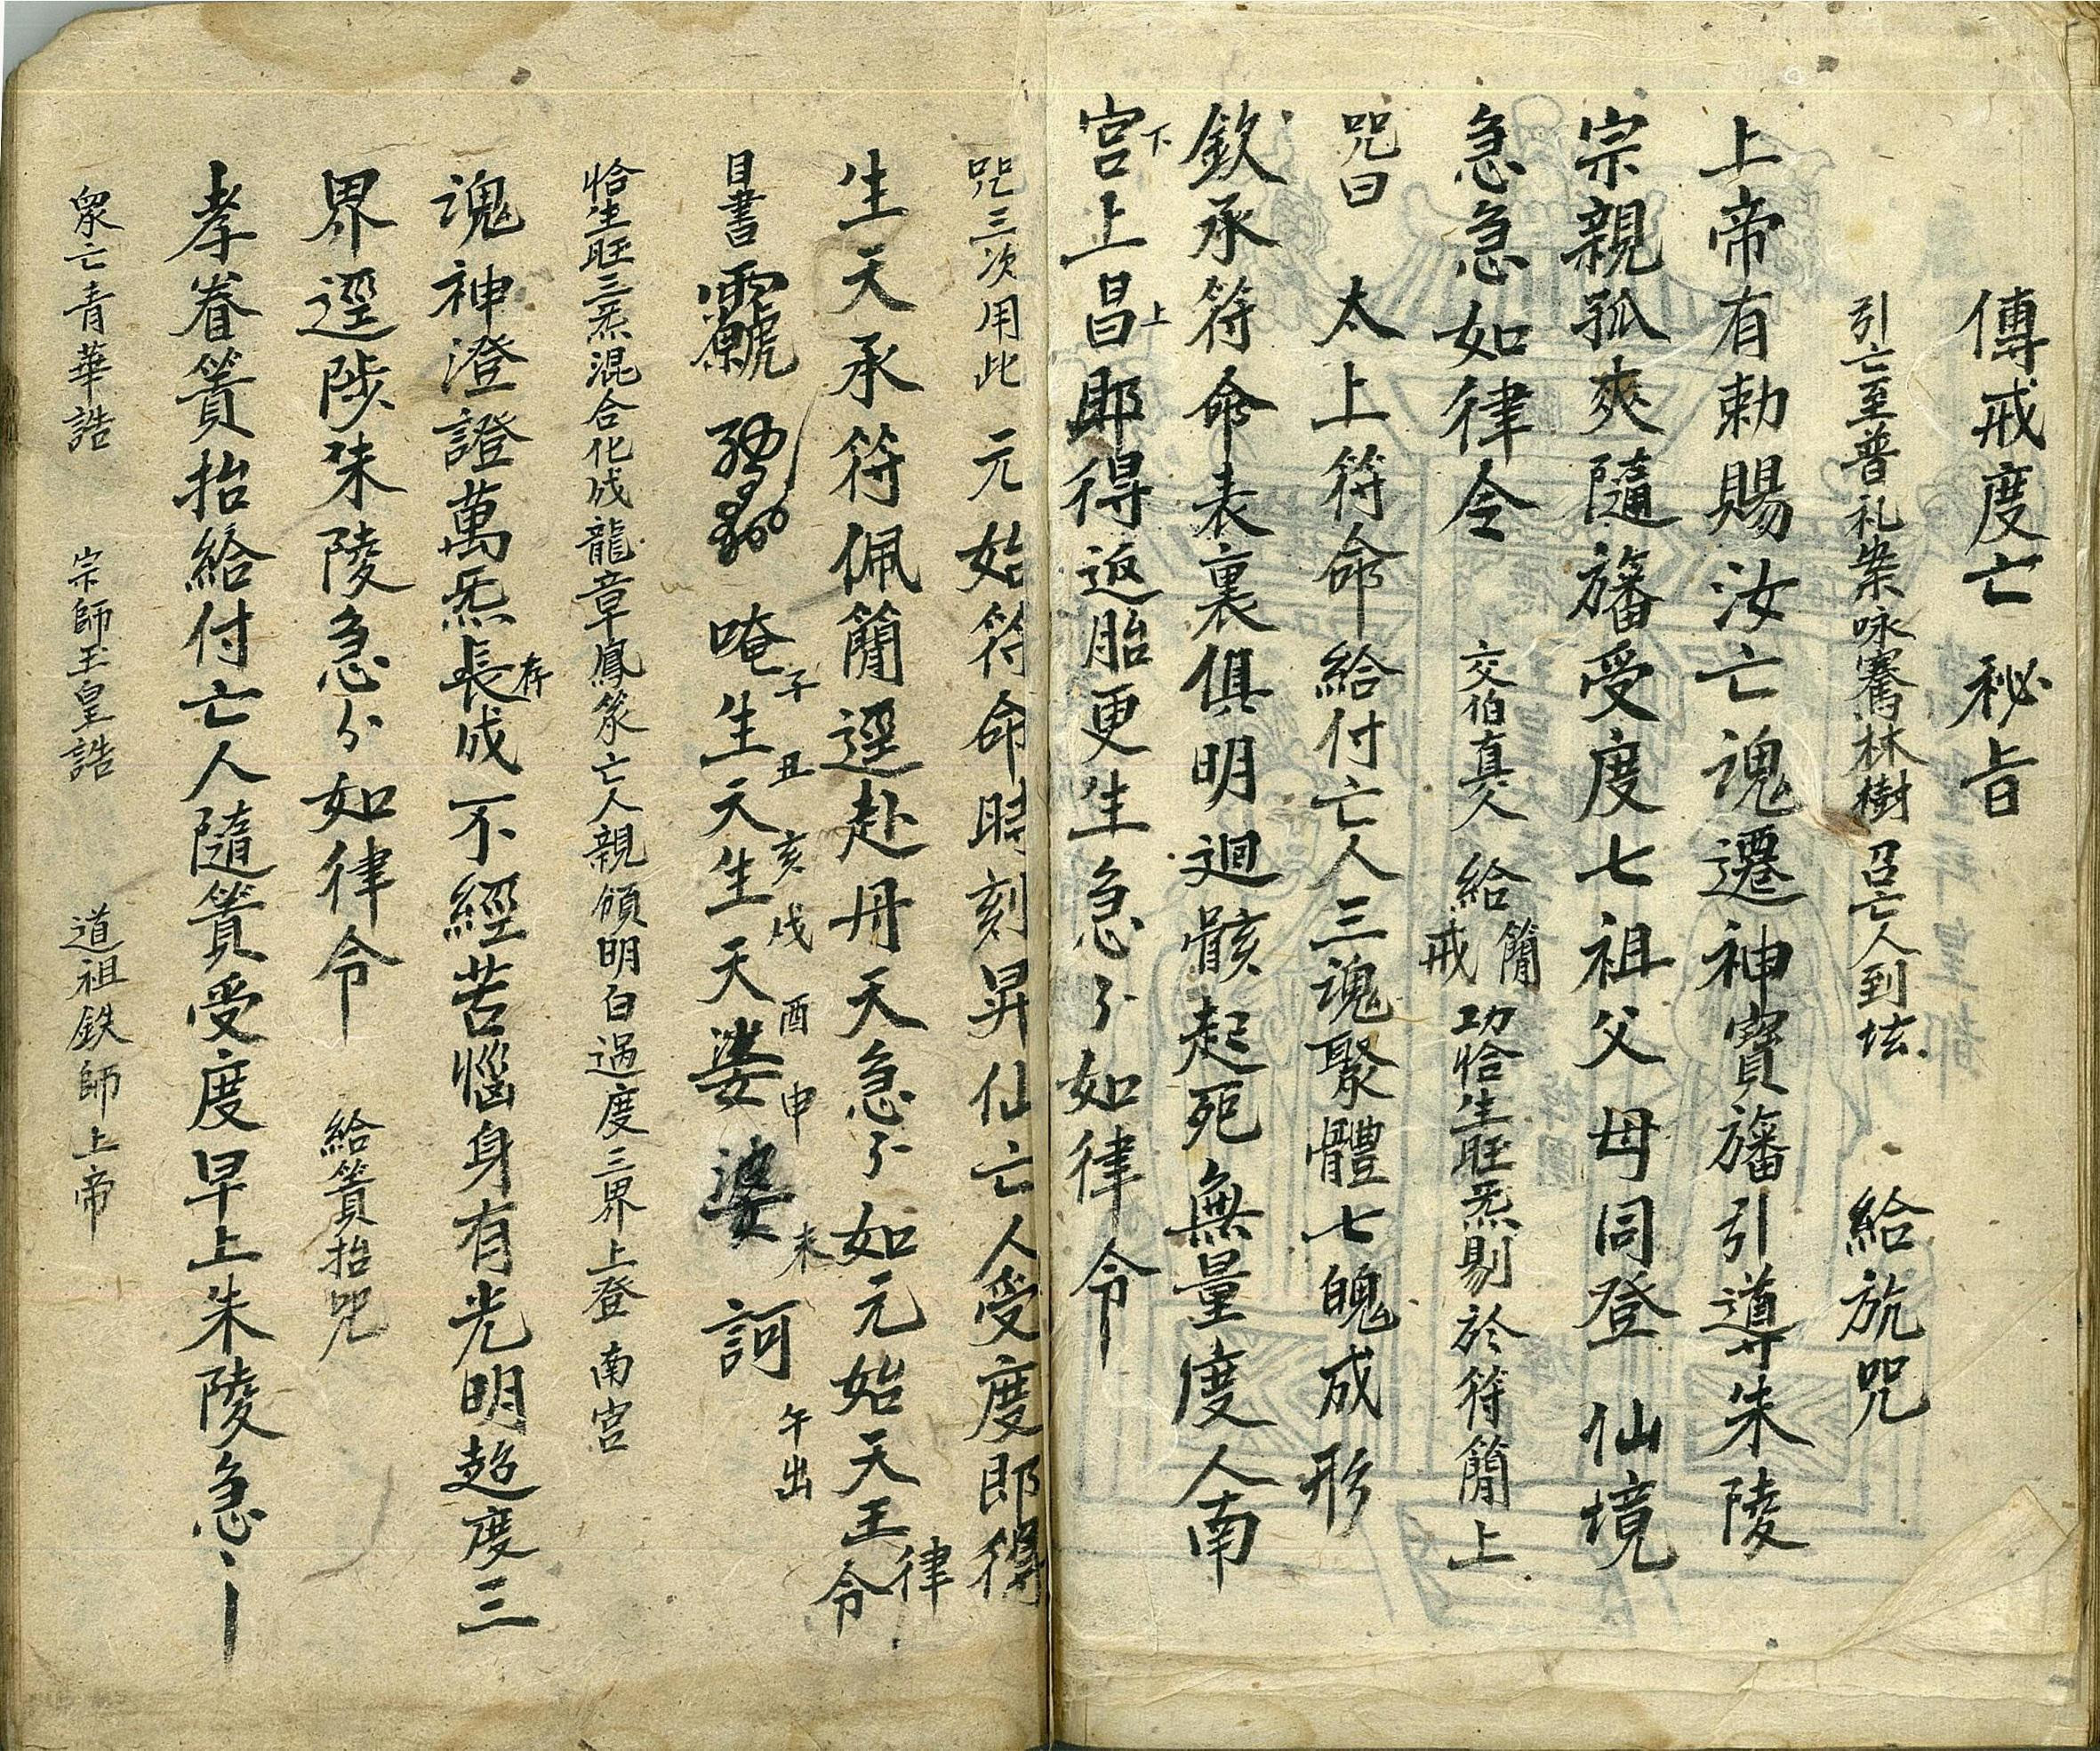 傳戒度亡秘旨
引亡至普礼案咏騫林樹召亡人到坛 給旂咒
上帝有勅賜汝亡魂遷神寶旛引導朱陵
宗親孤爽隨旛受度七祖父母同登仙境
急急如律令 交伯真人 給簡戒 功恰生旺炁剔於符簡上
咒曰 太上符命給付亡人三魂聚體七魄成形
欽承符命表裏俱明迴骸起死無量度人南
宮下上昌上郎得返胎更生急〻如律令
咒三次用此 元始符命時刻昇仙亡人受度即得
生天承符佩簡逕赴丹天急〻如元始天王律令
目書 唵子生丑天亥生戌天酉娑申婆未訶午出
恰生旺三炁混合化成龍章鳳篆亡人親領明白過度三界上登南宮
魂神澄證萬炁長存成不經苦惱身有光明超度三
界逕陟朱陵急〻如律令 給籄抬咒
孝眷籄抬給付亡人隨籄受度早上朱陵急〻
眾亡青華誥 宗師玉皇誥 道祖鉄師上帝